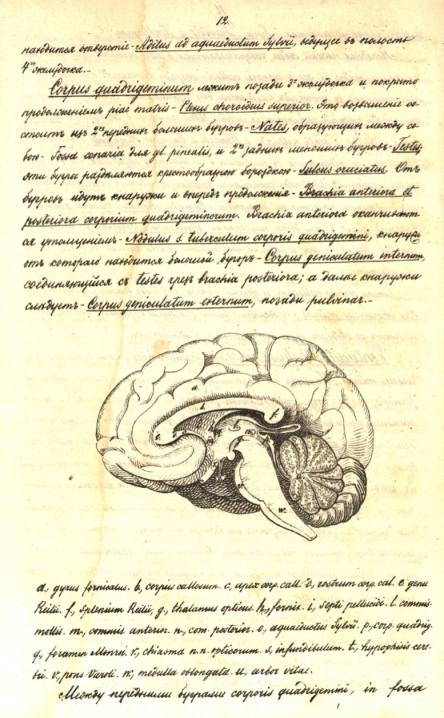 12.
находится отверстіе - Aditus ad aquaeductum Sylvii, ведущее въ полость
4го желудочка..
Corpus quadrigeminum лежитъ позади 3го желудочка и покрыто
продолженіемъ piae matris - Plexus choroideus superior. Это возвышеніе со-
стоитъ изъ 2хъ переднихъ большихъ бугровъ - Nates, образующихъ между со-
бою - Fossa conaria для gl. pinealis, и 2хъ заднихъ меньшихъ бугровъ - Testes,
эти бугры раздѣляются крестообразною бороздкою - Sulcus cruciatus. Отъ
бугровъ идутъ кнаружи и впередъ продолженія - Brachia anteriora et
posteriora corporum quadrigeminorum. Brachia anteriora оканчивают-
ся утолщеніемъ - Nodulus s. tuberculum corporis quadrigemini, кнаружи
отъ котораго находится большой бугоръ - Corpus geniculatum internum,
соединяющійся съ testes чрезъ brachia posteriora; а далѣе кнаружи
слѣдуетъ - Corpus geniculatum externum, позади pulvinar..
a, gyrus fornicatus. b, corpus callosum. c, apex corp. call. d, rostrum corp. cal. e, genu
Reilii. f, splenium Reilii, g, thalamus opticus. h, fornix. i, septi pellucidi. l, commis.
mollis. m, commis anterior. n, com. posterior. o, aquaeductus Sylvii. p, corp. quadrig.
q, foramen Monroi. r, chiasma n.n. opticorum. s, infundibulum. t, hypophisis cere-
bri. v, pons Varoli. w, medulla oblongata. u, arbor vitae.
Между передними буграми corporis quadrigemini, in fossa